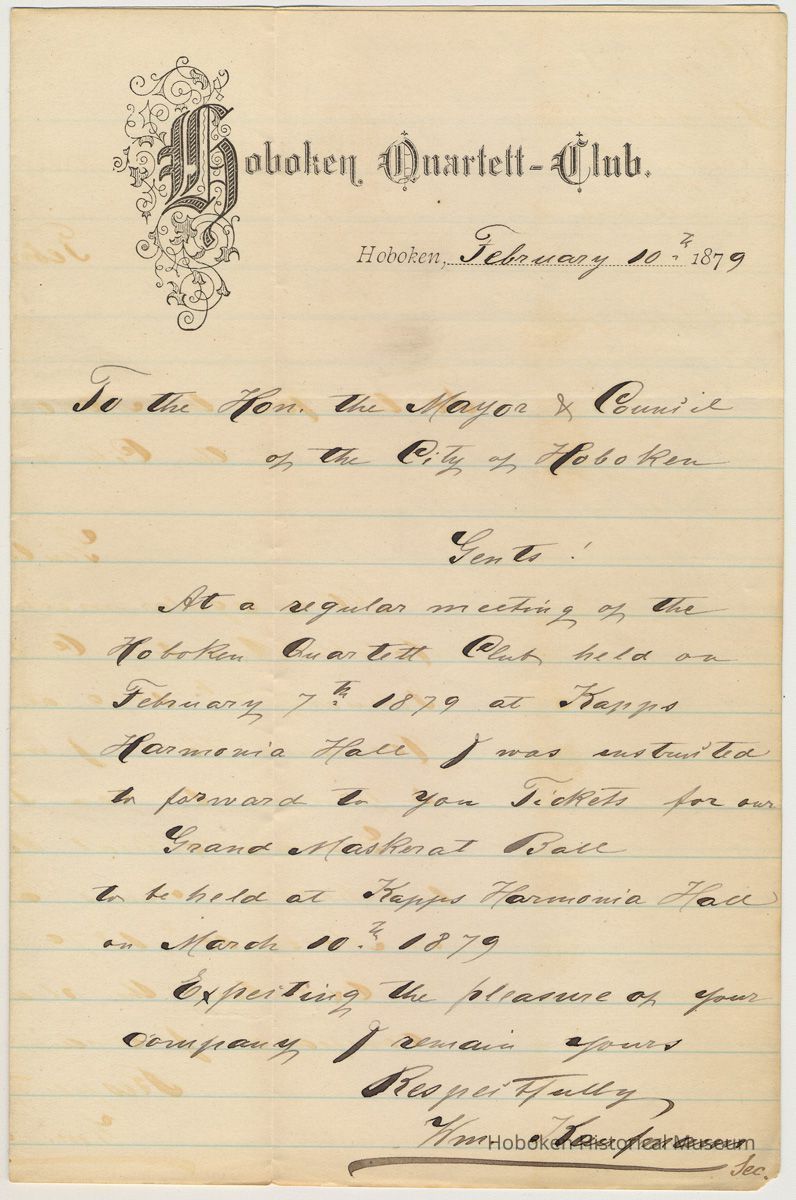 Hoboken Quartett-Club.
Hoboken, February 10th 1879
To the Hon. the Mayor & Council
of the City of Hoboken
Gents!
At a regular meeting of the
Hoboken Quartett Club held on
February 7th 1879 at Kapps
Harmonia Hall I was instructed
to forward to you Tickets for our
Grand Maskerat Ball
to be held at Kapps Harmonia Hall
on March 10th 1879
Expecting the pleasure of your
Company I remain yours
Respectfully
Wm.
Hoboken Historical Museum
Sec.